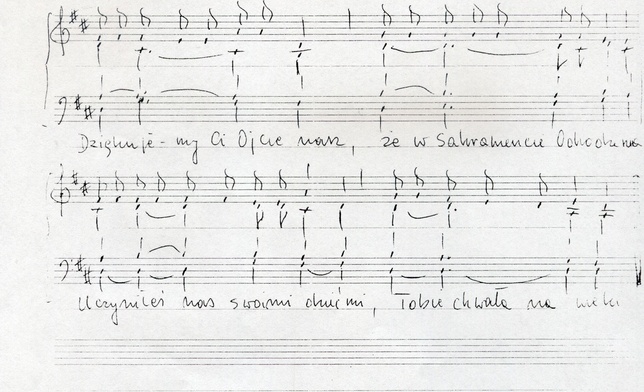 Dziękuje-my Ci Ojcie nasz, że w Sakramencie Odrodzenia
Uczyniłeś nas swoimi dziećmi, Tobie chwała na wieki